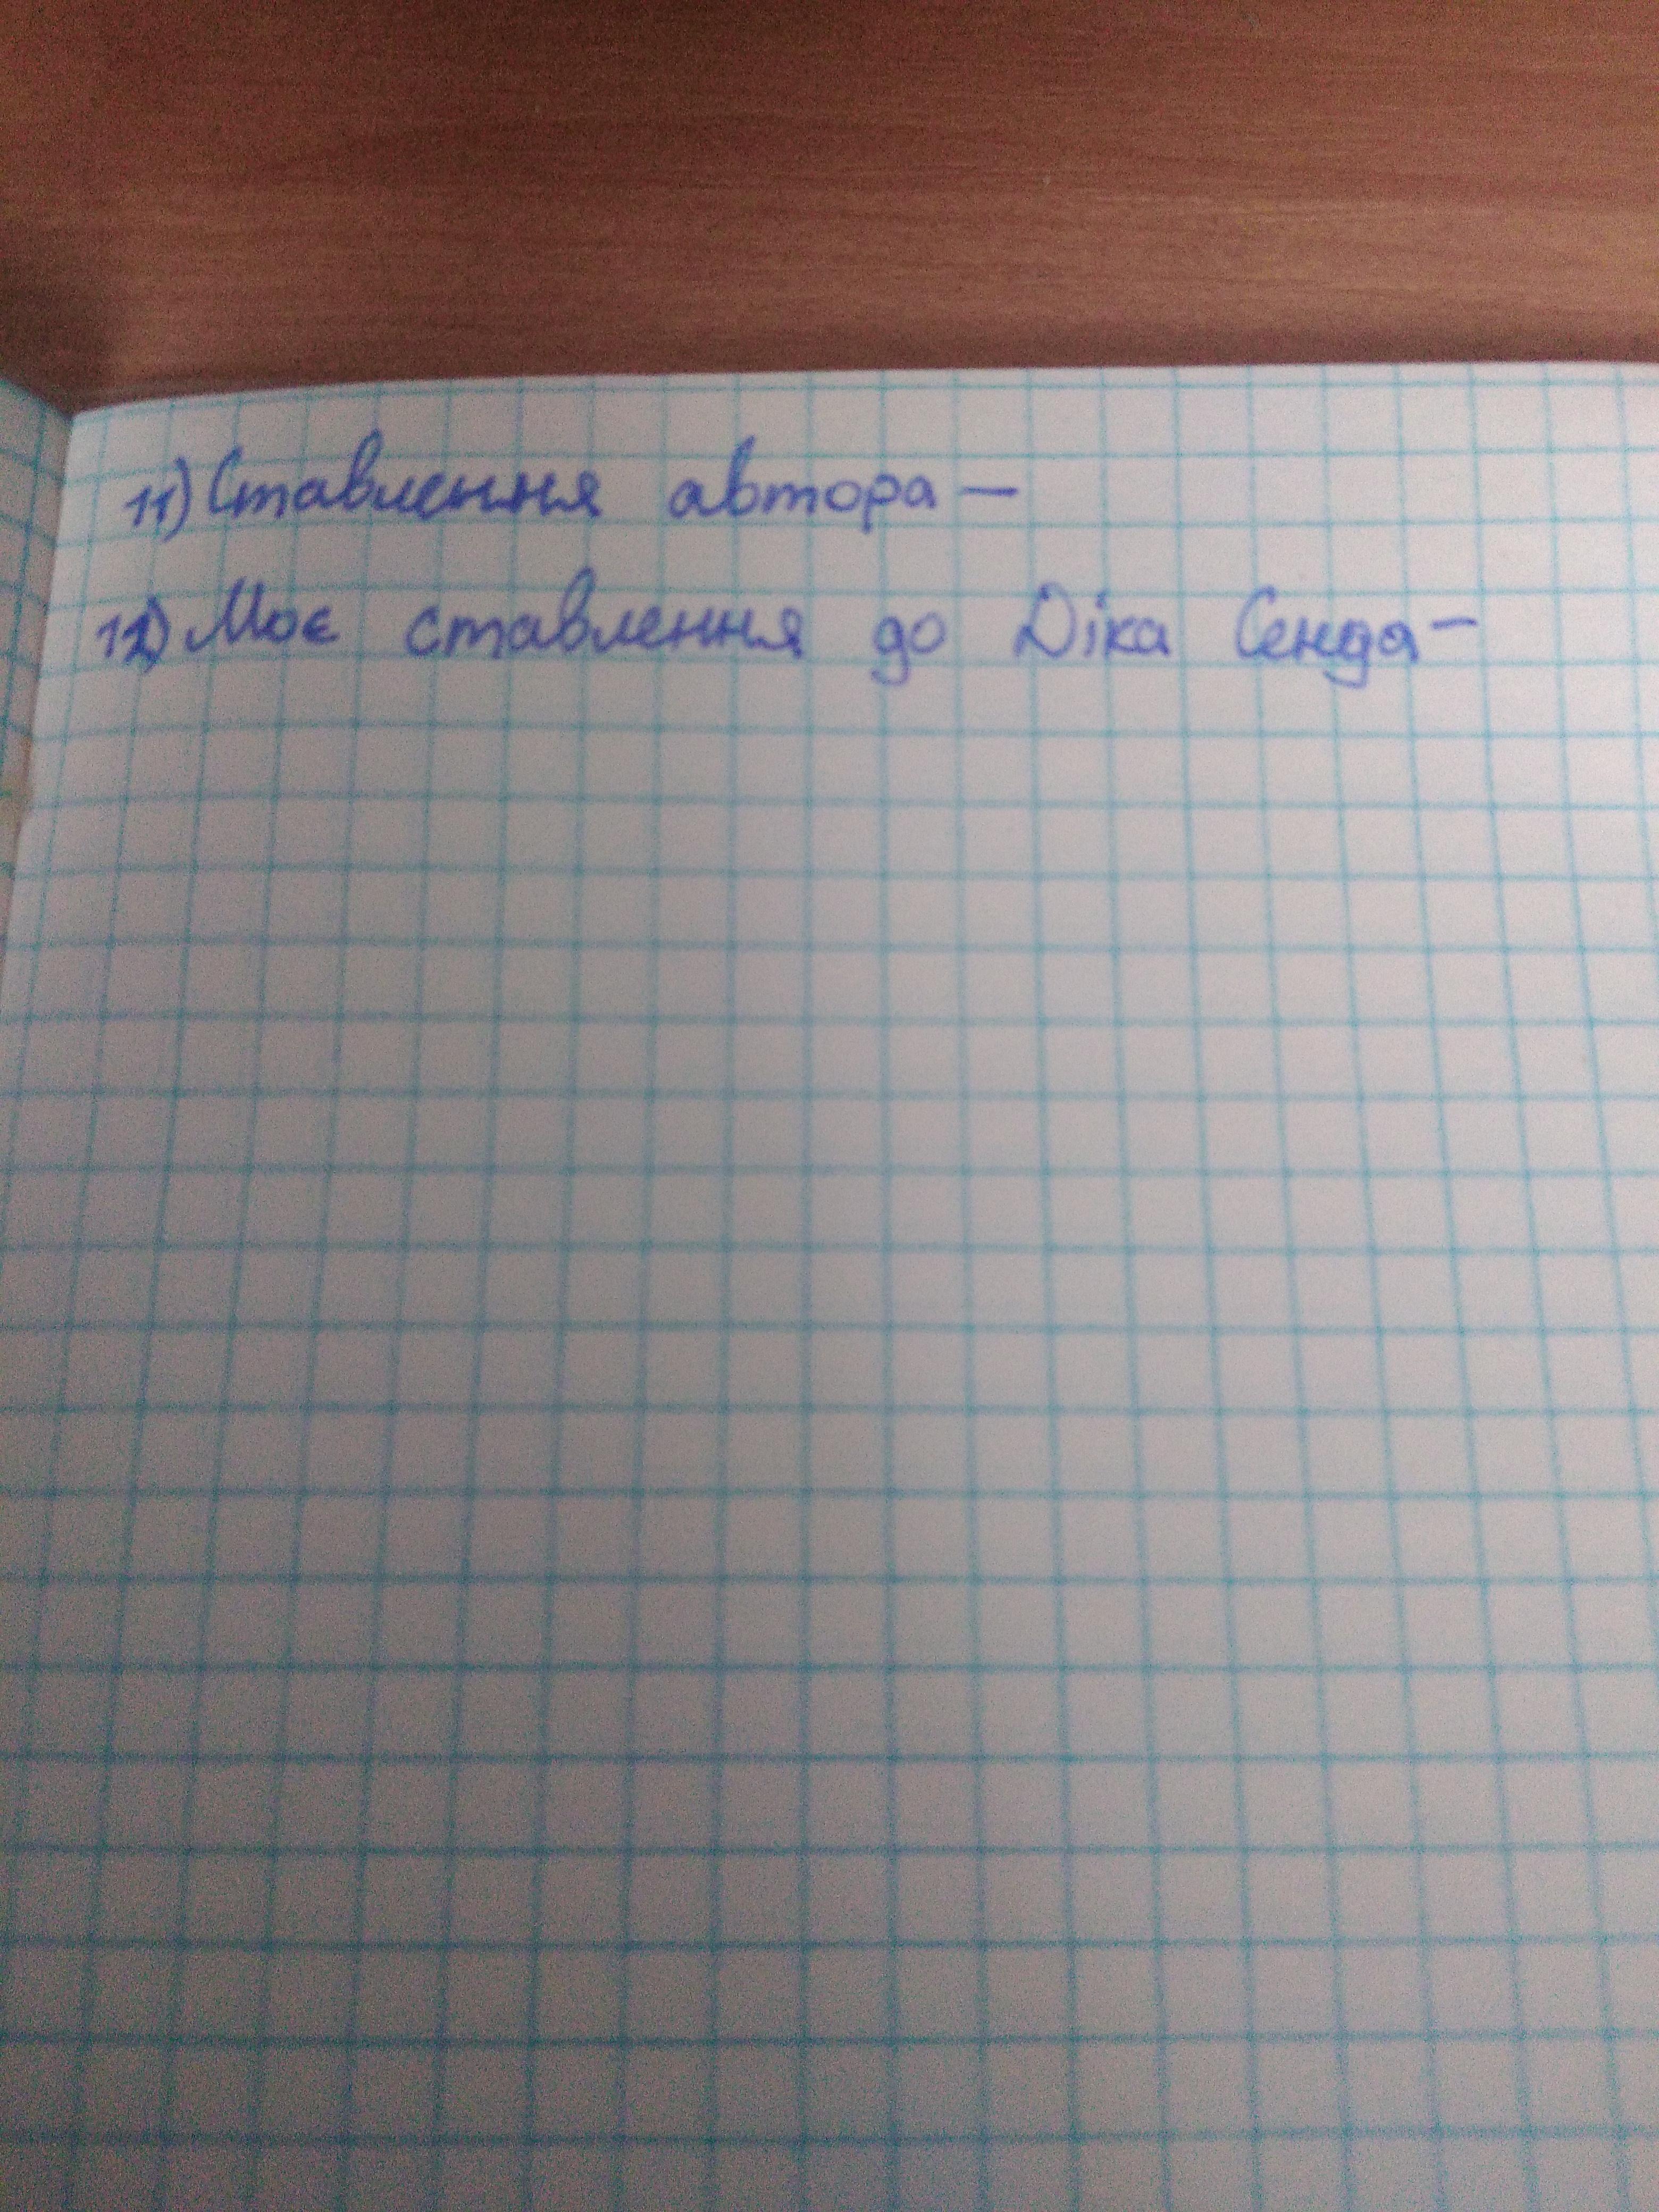 11) Ставлення автора —
12) Моє ставлення до Діка Сенда —